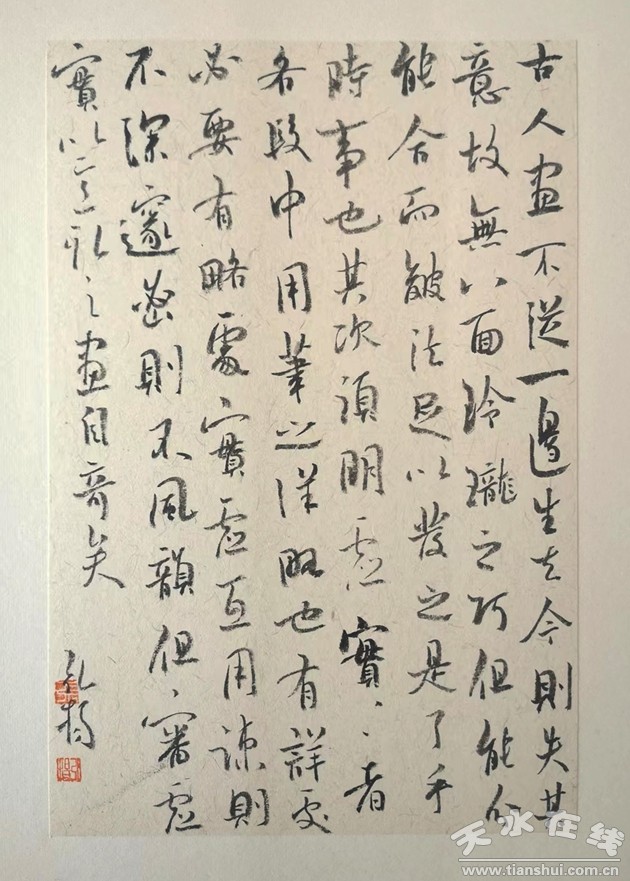 古人畫不從一邊生去今則失其
意故無八面玲瓏之巧但能分
能合而皴法足以發之是了手
時事也其次須明虛實〻者
各段中用筆之詳略也有詳處
必要有略處實虛互用疎則
不深邃密則不風韻但〻審虛
實以意取之畫自奇矣
天水在线
www.tianshui.com.cn